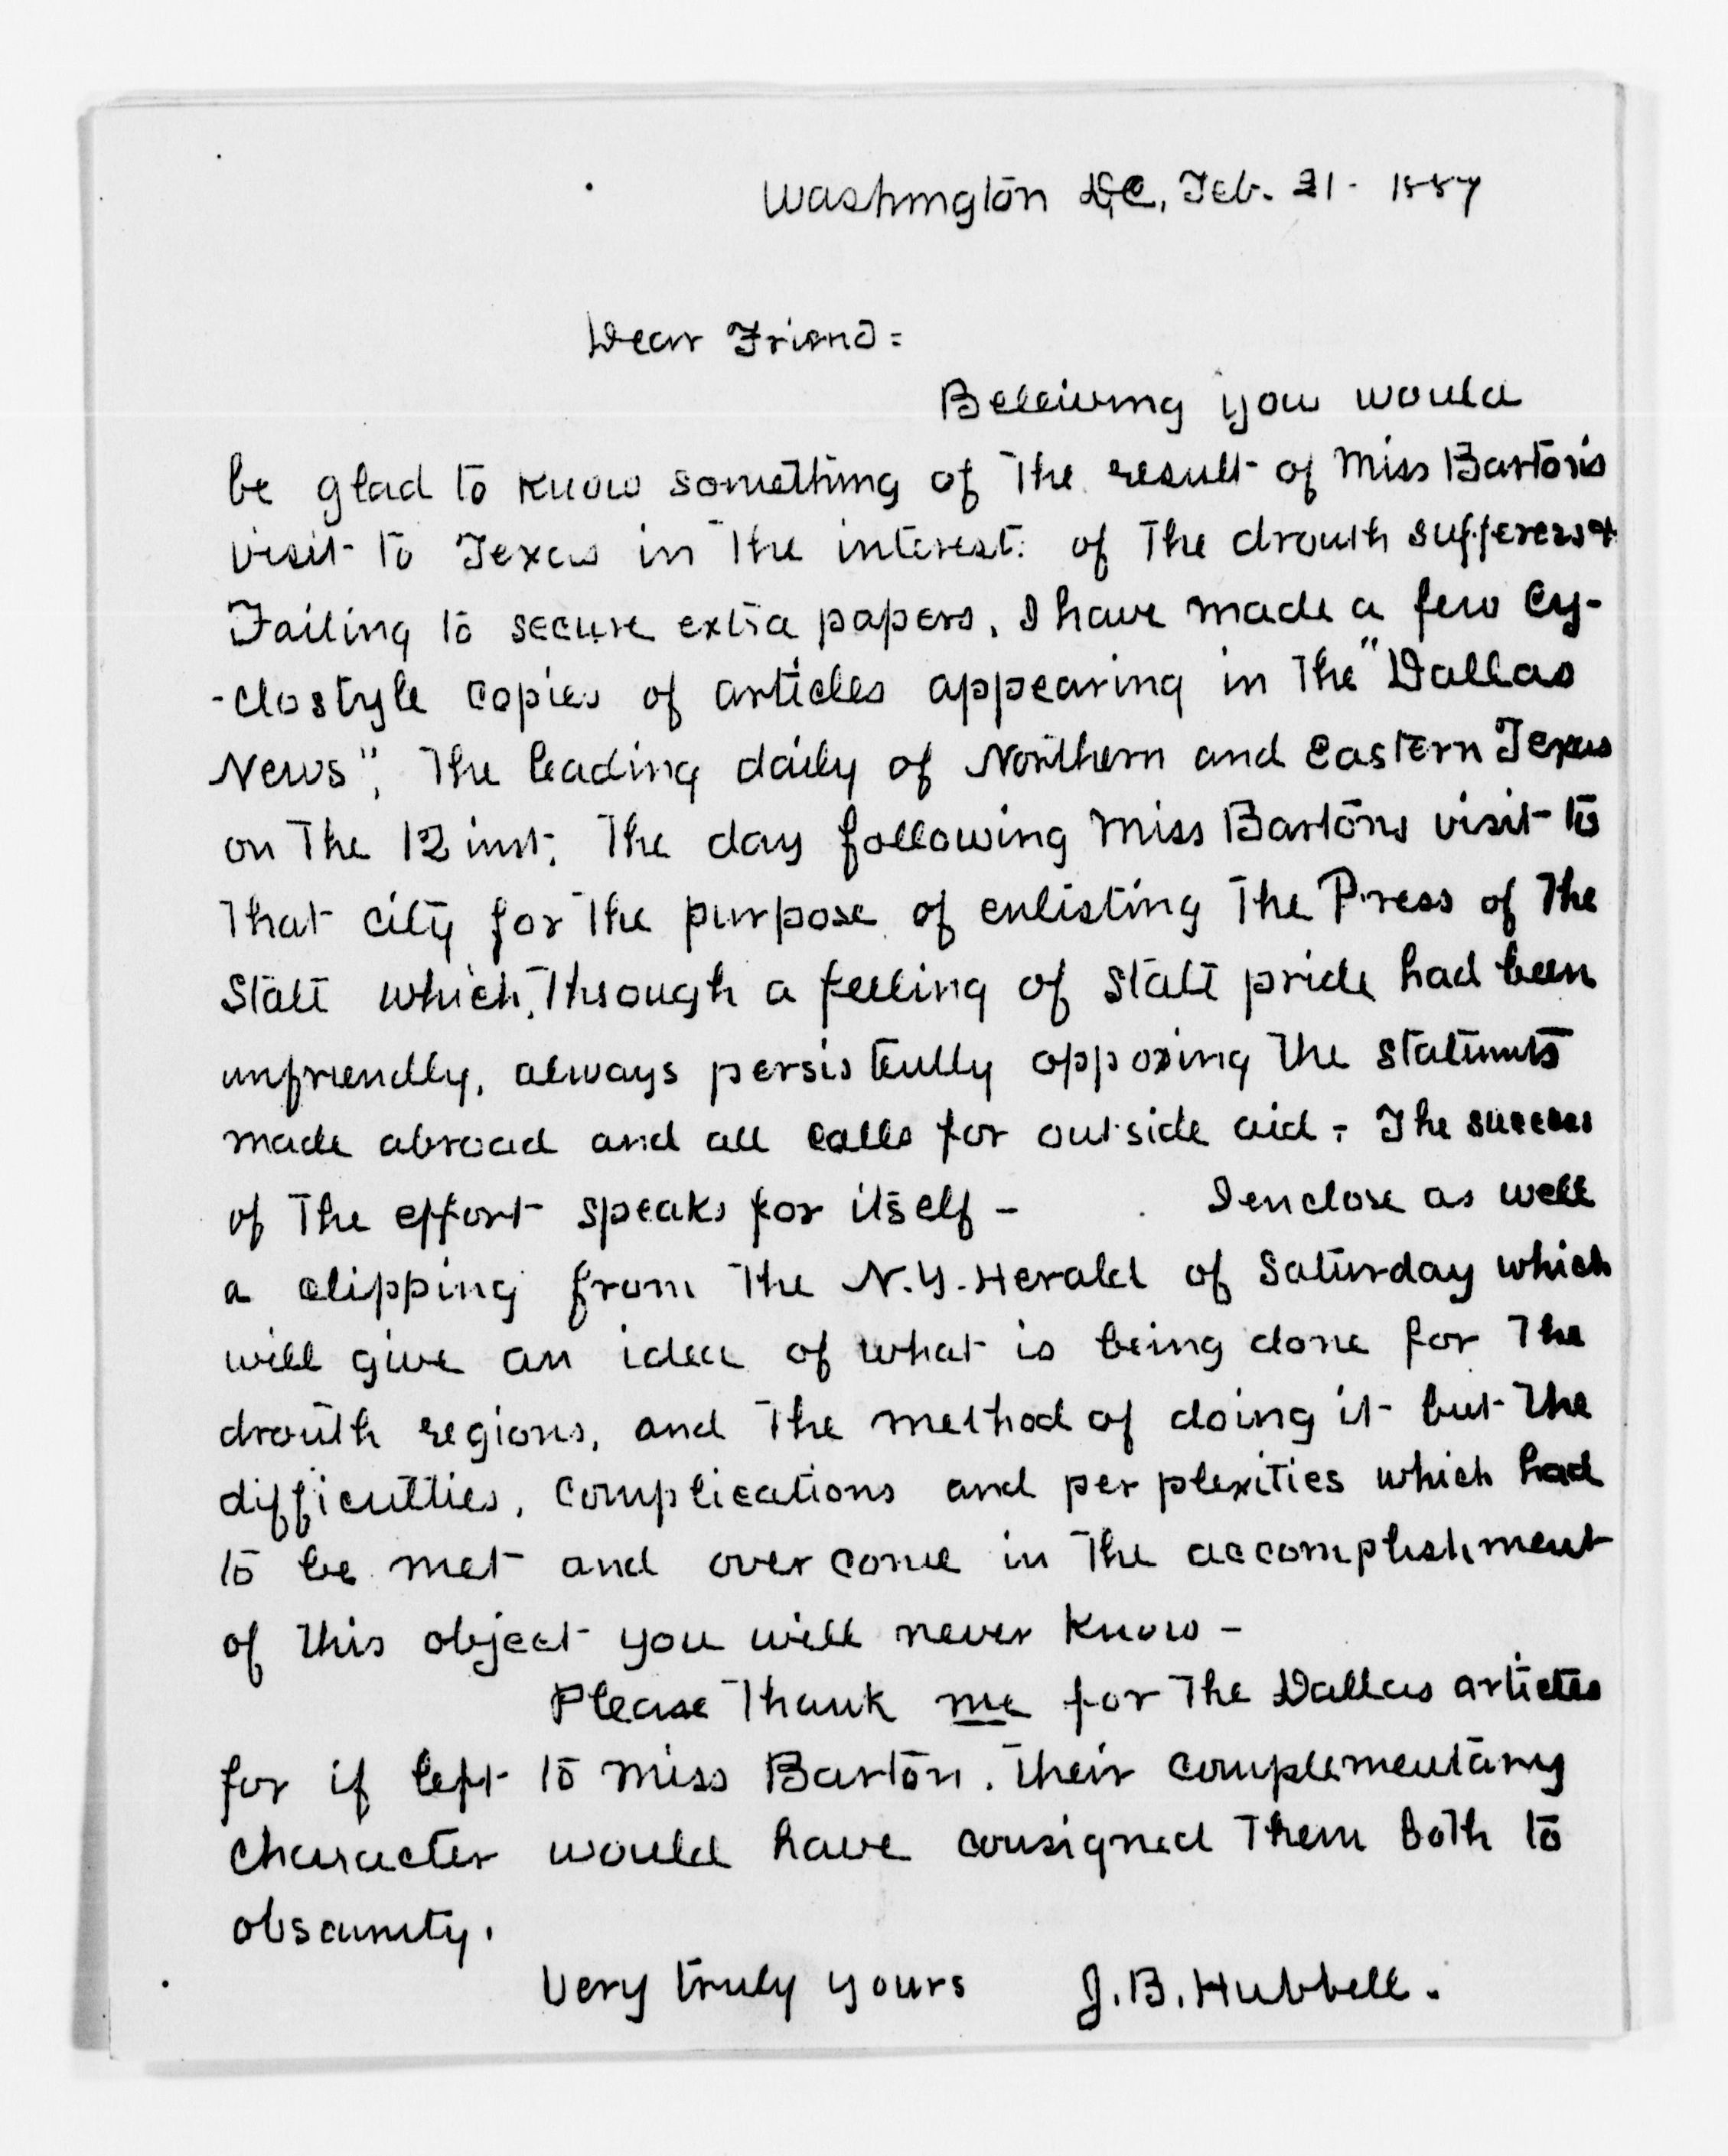 Washington D.C. Feb. 21 - 1887
Dear Friend =
Beleiving you would
be glad to know something of the result of Miss Barton's
visit to Texas in the interest of the drouth sufferers &
Failing to secure extra papers, I have made a few Cy-
-clostyle copies of articles appearing in the "Dallas
News", the leading daily of Northern and Eastern Texas
on the 12 inst; the day following Miss Bartons visit to
that city for the purpose of enlisting the Press of the
State which, through a feeling of State pride had been
unfriendly, always persistently opposing the statements
made abroad and all calls for outside aid - The success
of the effort speaks for itself - I enclose as well
a clipping from the N.Y. Herald of Saturday which
will give an idea of what is being done for the
drouth regions, and the method of doing it but the
difficulties, complications and perplexities which had
to be met and overcome in the accomplishment
of this object you will never know -
Please thank me for the Dallas articles
for if left to Miss Barton, their complementary
character would have consigned them both to
obscurity.
Very truly yours J. B. Hubbell.